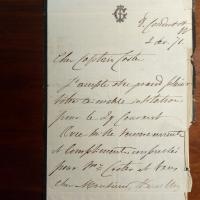 2 Dec. 71.
Cher Captain Coster
J'accepte avec grand plaisir
votre aimable invitation
pour le 29 Courant
Avec les remerciements
et compliments empressés
pour Mme Coster et vous
Cher Monsieur,